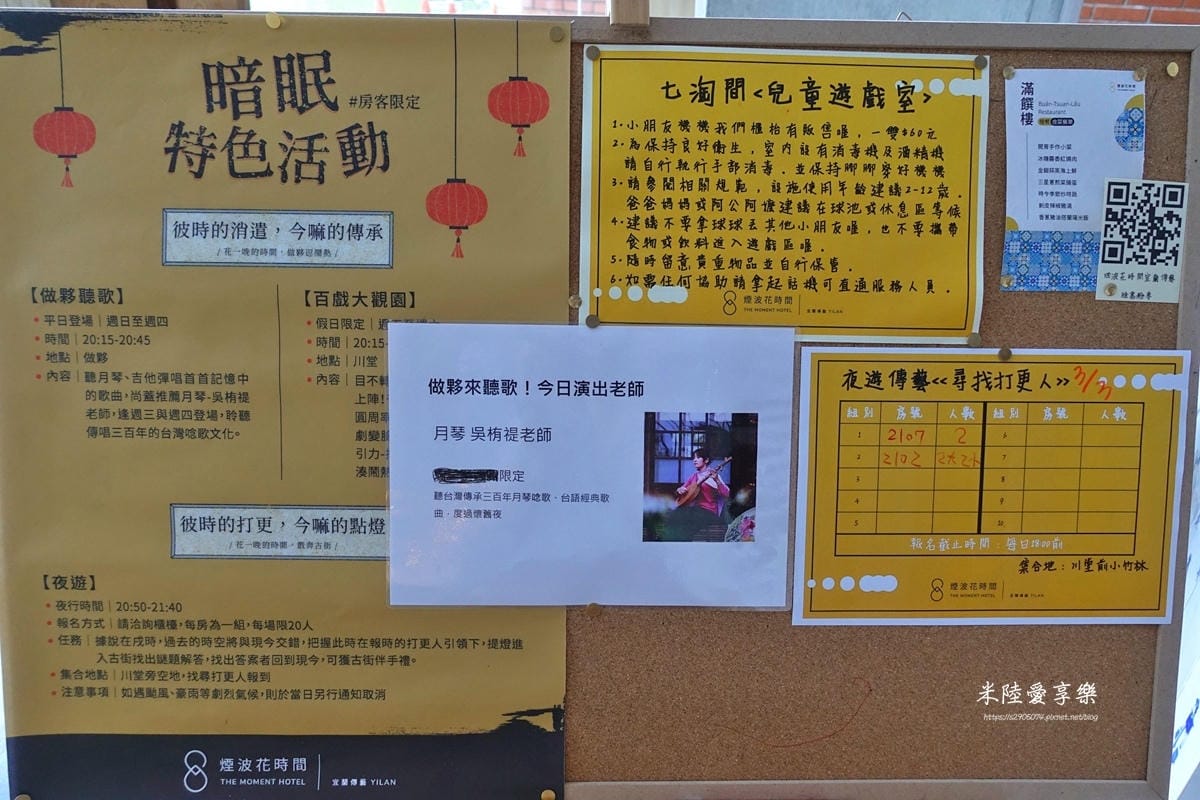 暗眠
#房客限定
特色活動
彼時的消遣，今嘛的傳承
/ 花一晚的時間，做夥逗鬧熱 /
【做夥聽歌】
• 平日登場｜週日至週四
• 時間｜20:15-20:45
• 地點｜做夥
• 內容｜聽月琴、吉他彈唱首首記憶中
的歌曲，尚蓋推薦月琴-吳栯禔
老師，逢週三與週四登場，聆聽
傳唱三百年的台灣唸歌文化。
【百戲大觀園】
• 假日限定｜
• 時間｜20:15-
• 地點｜川堂
• 內容｜目不轉
上陣！
圓周
劇變臉
引力-
湊鬧熱
彼時的打更，今嘛的點燈
/ 花一晚的時間，戲奔古街 /
【夜遊】
• 夜行時間｜20:50-21:40
• 報名方式｜請洽詢櫃檯，每房為一組，每場限20人
• 任務｜據說在戌時，過去的時空將與現今交錯，把握此時在報時的打更人引領下，提燈進
入古街找出謎題解答，找出答案者回到現今，可獲古街伴手禮。
• 集合地點｜川堂旁空地，找尋打更人報到
• 注意事項｜如遇颱風、豪雨等劇烈氣候，則於當日另行通知取消
煙波花時間
THE MOMENT HOTEL
宜蘭傳藝 YILAN
七淘間<兒童遊戲室>
1.小朋友機機我們櫃枱有販售喔，一雙$60元
2.為保持良好衛生，室內設有消毒機及酒精機
請自行執行手部消毒，並保持腳腳穿好機機
3.請參閱相關規範，設施使用年齡建議2-12歲.
爸爸媽媽或阿公阿嬤建議在球池或休息區等候
4.建議不要拿球球丟其他小朋友喔，也不要攜帶
食物或飲料進入遊戲區喔.
5.隨時留意貴重物品並自行保管.
6.如需任何協助請拿起話機可直通服務人員.
煙波花時間
THE MOMENT HOTEL
宜蘭傳藝 YILAN
滿饌樓
Buán-Tsuan-Lâu
Restaurant
開胃手作小菜
香蔥豬油搭蘭陽米飯
煙波花時間宜蘭傳藝
臉書粉專
做夥來聽歌！今日演出老師
月琴 吳栯禔老師
限定
聽台灣傳承三百年月琴唸歌、台語經典歌
曲，度過懷舊夜
夜遊傳藝<<尋找打更人>> 3/3
組別 房號 人數 組別 房號 人數
1 2107 2 6
2 2102 2大2小 7
3 8
4 9
5 10
報名截止時間：每日18:00前
集合地：川堂前小竹林
煙波花時間
THE MOMENT HOTEL
宜蘭傳藝 YILAN
米陸愛享樂
https://s2906074.pixnet.net/blog